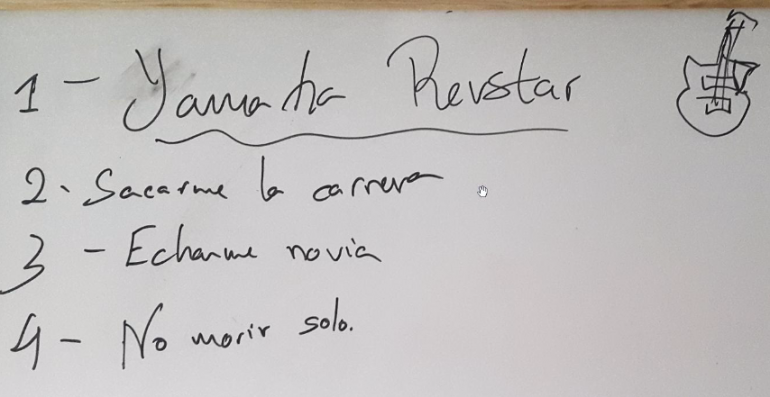 1 - Yamaha Revstar
2. Sacarme la carrera
3 - Echarme novia
4 - No morir solo.